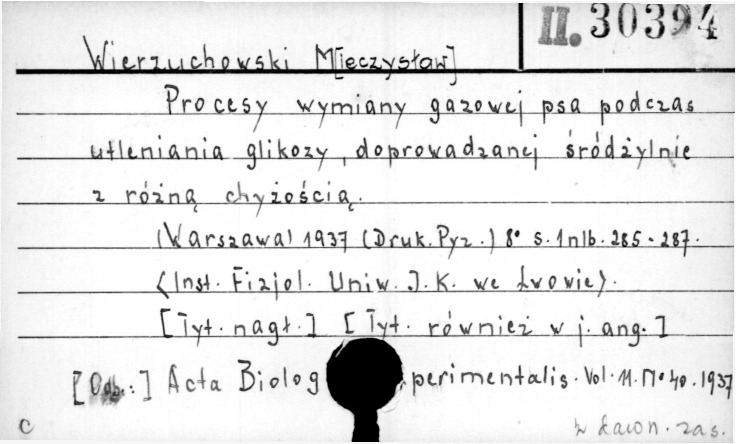 II. 30394
Wierzuchowski M[ieczysław]
Procesy wymiany gazowej psa podczas
utleniania glikozy, doprowadzanej śródżylnie
z różną chyżością.
(Warszawa) 1937 (Druk. Pyz.) 8° s. 1nlb. 285-287.
<Inst. Fizjol. Uniw. J. K. we Lwowie>.
[Tyt. nagł.] [Tyt. również w j. ang.]
[Odb.:] Acta Biolog perimentalis. Vol. 11. N° 40. 1937
c zas.